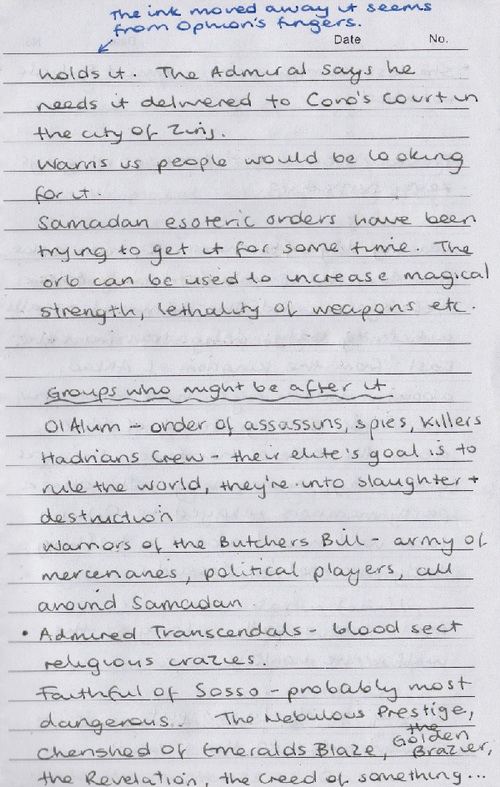 The ink moved away it seems
from Ophion's fingers.
Date No.
holds it. The Admiral says he
needs it delivered to Coro's court in
the city of Zinj.
Warns us people would be looking
for it.
Samadan esoteric orders have been
trying to get it for some time. The
orb can be used to increase magical
strength, lethality of weapons etc.
Groups who might be after it
Ol Alum - order of assassins, spies, killers
Hadrians Crew - their elite's goal is to
rule the world, they're into slaughter +
destruction
Warriors of the Butchers Bill - army of
mercenaries, political players, all
around Samadan
• Admired Transcendals - blood sect
religious crazies.
Faithful of Sosso - probably most
dangerous. The Nebulous Prestige,
Cherished of Emeralds Blaze, the Golden Brazier,
the Revelation, the Creed of something...